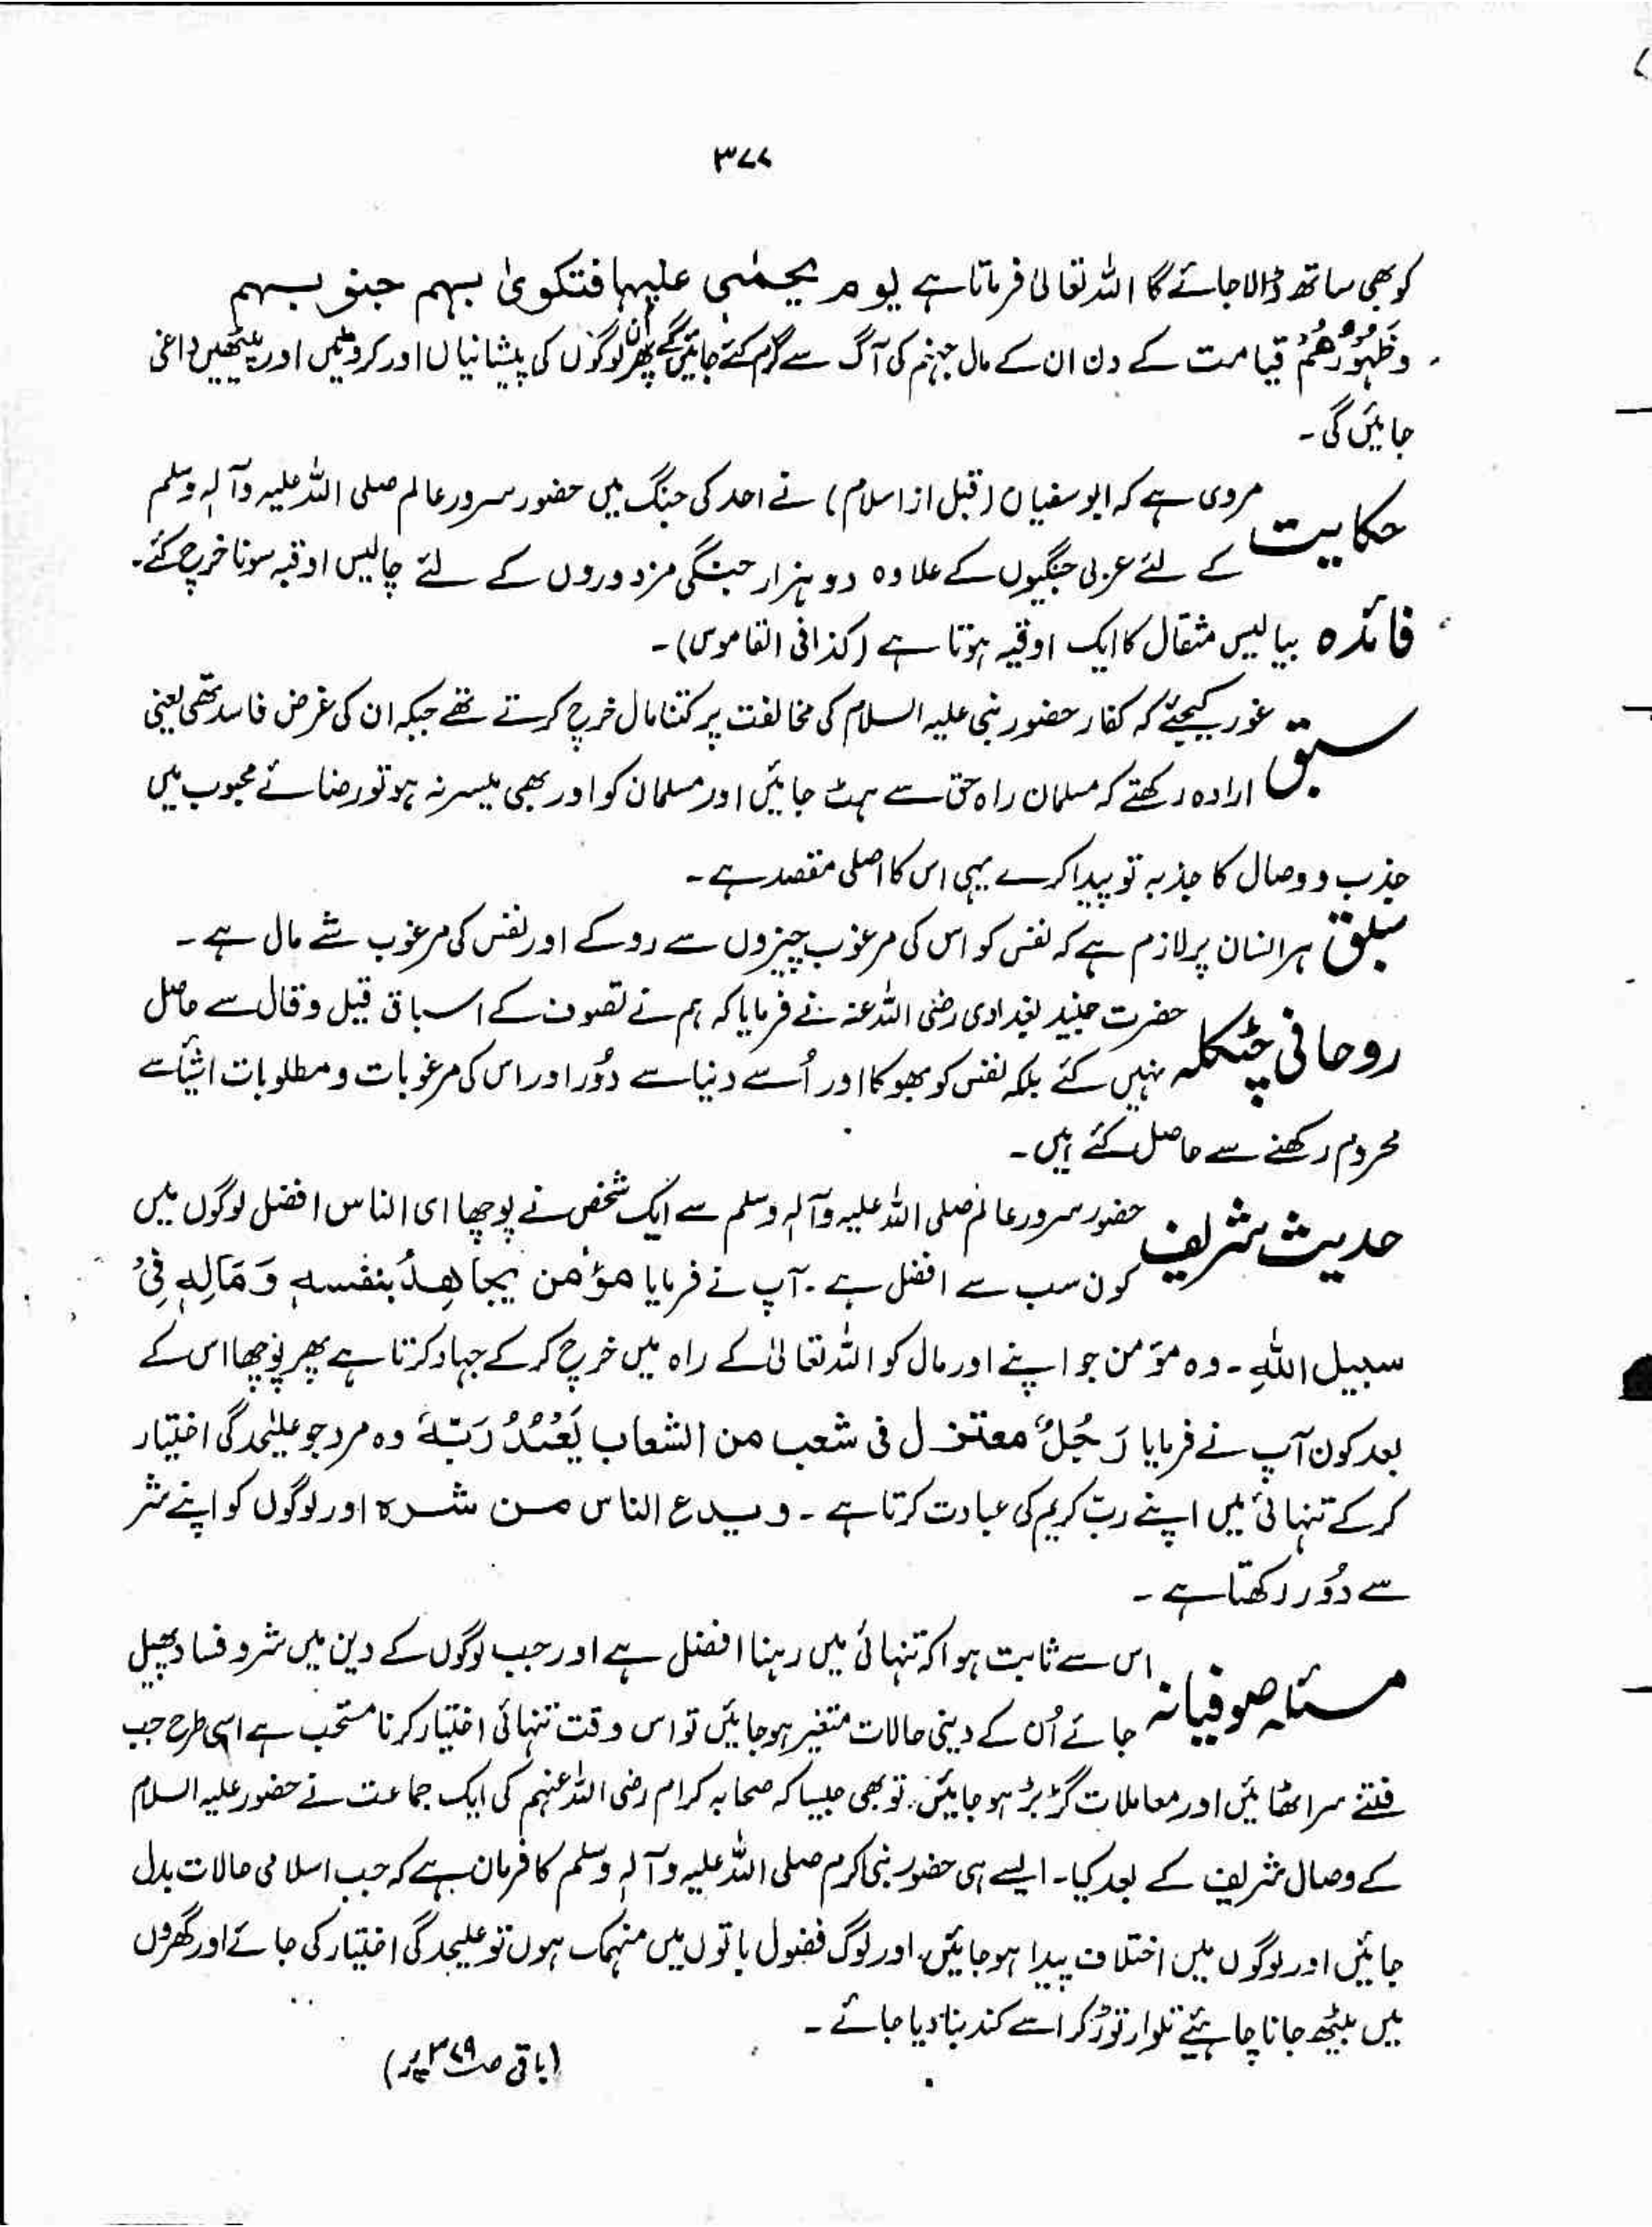 ۳۷۷
کو بھی ساتھ ڈالا جائے گا اللہ تعالیٰ فرماتا ہے یوم یحمٰی علیہا فتکویٰ بہم جنوبہم
وَظہُوْرُھُمْ قیامت کے دن ان کے مال جہنم کی آگ سے گرم کئے جائیں گے پھر ان لوگوں کی پیشانیاں اور کروٹیں اور پیٹھیں داغی
جائیں گی۔
حکایت مروی ہے کہ ابو سفیان (قبل از اسلام) نے احد کی جنگ میں حضور سرور عالم صلی اللہ علیہ وآلہٖ وسلم
کے لئے عربی جنگیوں کے علاوہ دو ہزار جنگی مزدوروں کے لئے چالیس اوقیہ سونا خرچ کئے۔
فائدہ بیالیس مثقال کا ایک اوقیہ ہوتا ہے (کذا فی القاموس)۔
سبق غور کیجئے کہ کفار حضور نبی علیہ السلام کی مخالفت پر کتنا مال خرچ کرتے تھے جبکہ ان کی غرض فاسد تھی یعنی
ارادہ رکھتے کہ مسلمان راہ حق سے ہٹ جائیں اور مسلمان کو اور بھی میسر نہ ہو تو رضائے محبوب میں
جذب و وصال کا جذبہ تو پیدا کرے یہی اس کا اصلی مقصد ہے۔
سبق ہر انسان پر لازم ہے کہ نفس کو اس کی مرغوب چیزوں سے روکے اور نفس کی مرغوب شے مال ہے۔
روحانی چٹکلہ حضرت جنید بغدادی رضی اللہ عنہ نے فرمایا کہ ہم نے تصوف کے اسباق قیل و قال سے حاصل
نہیں کئے بلکہ نفس کو بھوکا اور اُسے دنیا سے دُور اور اس کی مرغوبات و مطلوبات اشیأ سے
محروم رکھنے سے حاصل کئے ہیں۔
حدیث شریف حضور سرور عالم صلی اللہ علیہ وآلہٖ وسلم سے ایک شخص نے پوچھا ای الناس افضل لوگوں میں
کون سب سے افضل ہے۔ آپ نے فرمایا مؤمن یجاھِدُ بنفسہٖ وَمَالِہٖ فِیْ
سبیل اللہِ۔ وہ مؤمن جو اپنے اور مال کو اللہ تعالیٰ کے راہ میں خرچ کر کے جہاد کرتا ہے پھر پوچھا اس کے
بعد کون آپ نے فرمایا رَجُلٌ معتزل فی شعب من الشعاب یَعْبُدُ رَبَّہٗ وہ مرد جو علیٰحدگی اختیار
کر کے تنہائی میں اپنے ربّ کریم کی عبادت کرتا ہے۔ ویدع الناس من شرہ اور لوگوں کو اپنے شر
سے دُور رکھتا ہے۔
مسئلہ صوفیانہ اس سے ثابت ہوا کہ تنہائی میں رہنا افضل ہے اور جب لوگوں کے دین میں شر و فساد پھیل
جائے اُن کے دینی حالات متغیر ہو جائیں تو اس وقت تنہائی اختیار کرنا مستحب ہے اسی طرح جب
فتنے سر اٹھائیں اور معاملات گڑبڑ ہو جائیں۔ تو بھی جیسا کہ صحابہ کرام رضی اللہ عنہم کی ایک جماعت نے حضور علیہ السلام
کے وصال شریف کے بعد کیا۔ ایسے ہی حضور نبی کرم صلی اللہ علیہ وآلہٖ وسلم کا فرمان ہے کہ جب اسلامی حالات بدل
جائیں اور لوگوں میں اختلاف پیدا ہو جائیں۔ اور لوگ فضول باتوں میں منہمک ہوں تو علیحدگی اختیار کی جائے اور گھروں
میں بیٹھ جانا چاہیئے تلوار توڑ کر اسے کند بنا دیا جائے۔
(باقی صـ ۳۷۹ پر)